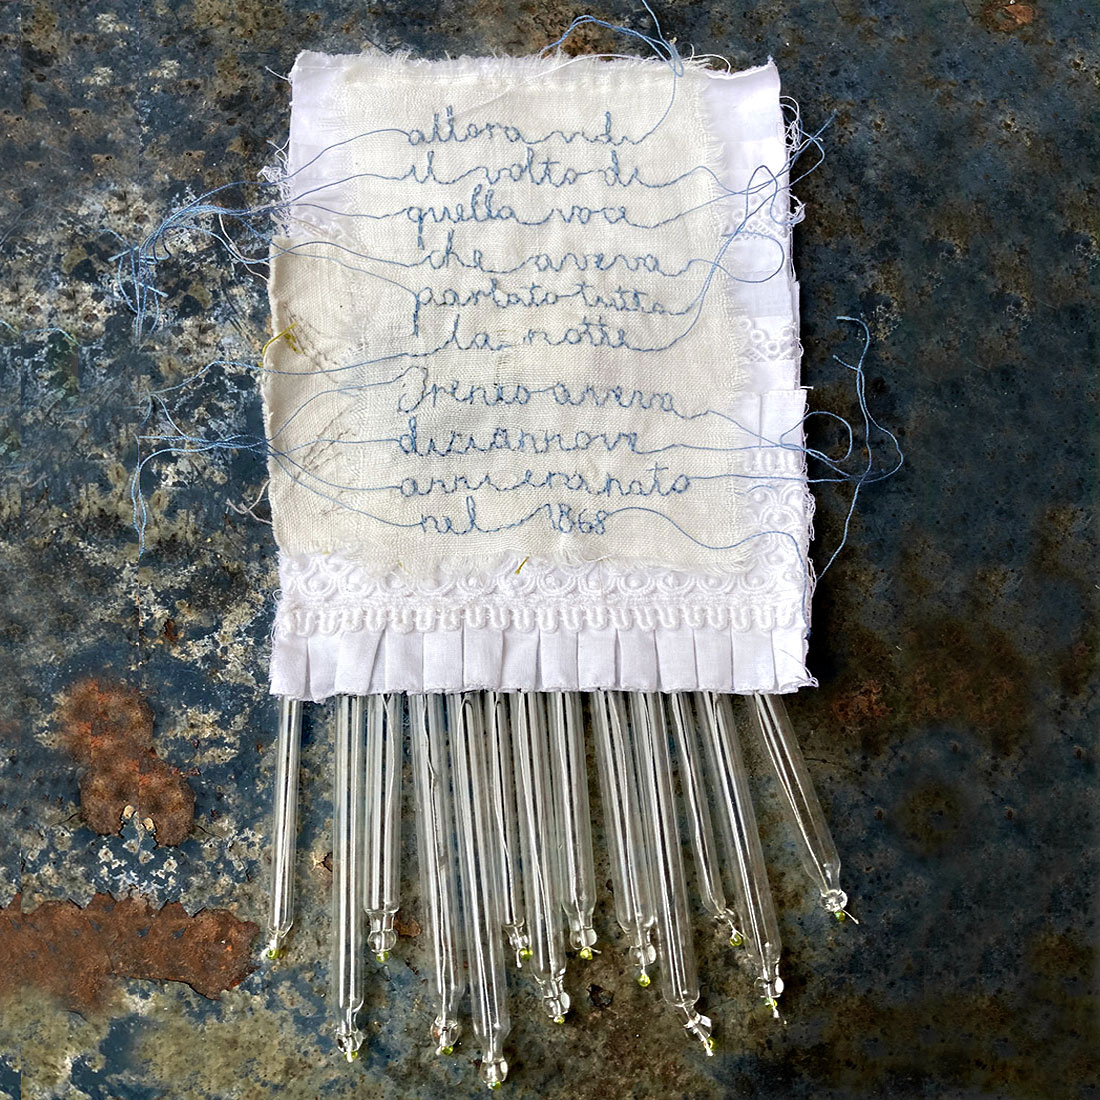 allora vidi
il volto di
quella voce
che aveva
parlato tutta
la notte
Ireneo aveva
diciannove
anni era nato
nel 1868